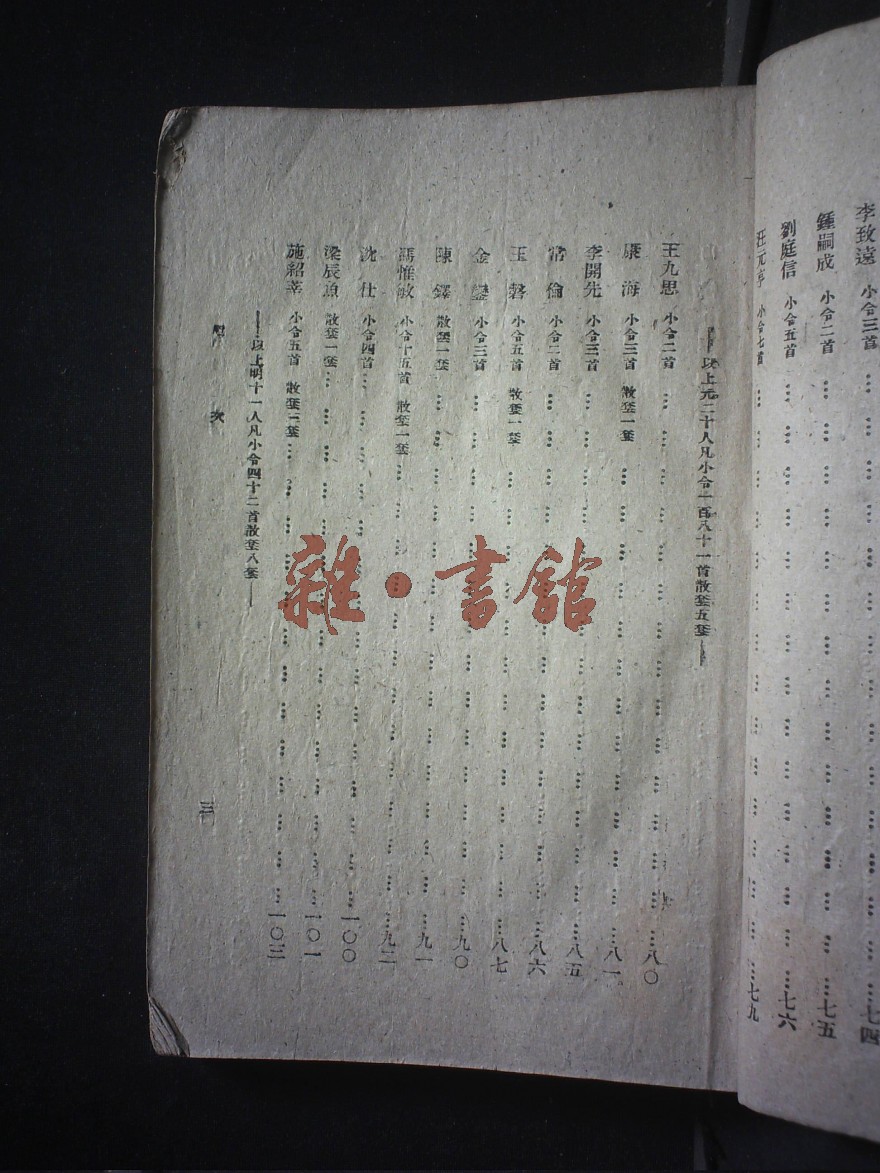 李致遠 小令三首…………七四
鍾嗣成 小令二首…………七五
劉庭信 小令五首…………七六
汪元亨 小令七首…………七九
——以上元二十人凡小令一百八十一首散套五套——
王九思 小令二首…………八〇
康海 小令三首 散套一套…………八一
李開先 小令三首…………八五
常倫 小令二首…………八六
王磐 小令五首 散套一套…………八七
金鑾 小令三首…………九〇
陳鐸 散套一套…………九一
馮惟敏 小令十五首 散套一套…………九二
沈仕 小令四首…………一〇〇
梁辰魚 散套一套…………一〇一
施紹莘 小令五首 散套三套…………一〇三
——以上明十一人凡小令四十二首散套八套——
次
三
雜·書館